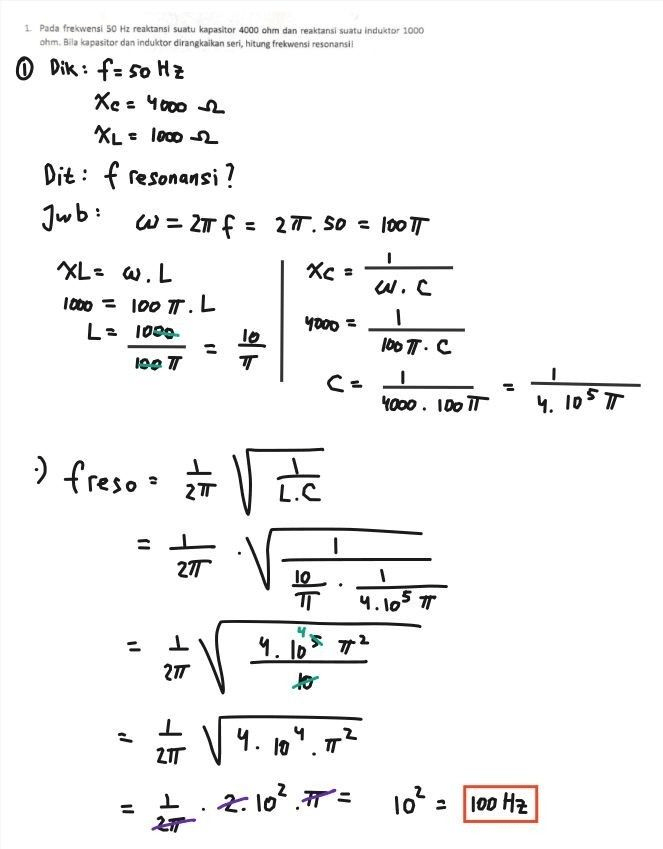 1. Pada frekwensi 50 Hz reaktansi suatu kapasitor 4000 ohm dan reaktansi suatu induktor 1000
ohm. Bila kapasitor dan induktor dirangkaikan seri, hitung frekwensi resonansi!
① Dik: f = 50 Hz
Xc = 4000 Ω
XL = 1000 Ω
Dit: f resonansi?
Jwb: ω = 2π f = 2π . 50 = 100 π
XL = ω . L
1000 = 100 π . L
L = 1000 / 100 π = 10 / π
Xc = 1 / ω . C
4000 = 1 / 100 π . C
C = 1 / 4000 . 100 π = 1 / 4. 10⁵ π
:) f reso = 1/2π √(1 / L.C)
= 1/2π . √(1 / (10/π . 1/4.10⁵ π))
= 1/2π √(4. 10⁵ ⁴ π² / 10)
= 1/2π √(4. 10⁴ . π²)
= 1/2π . 2. 10² . π = 10² = 100 Hz